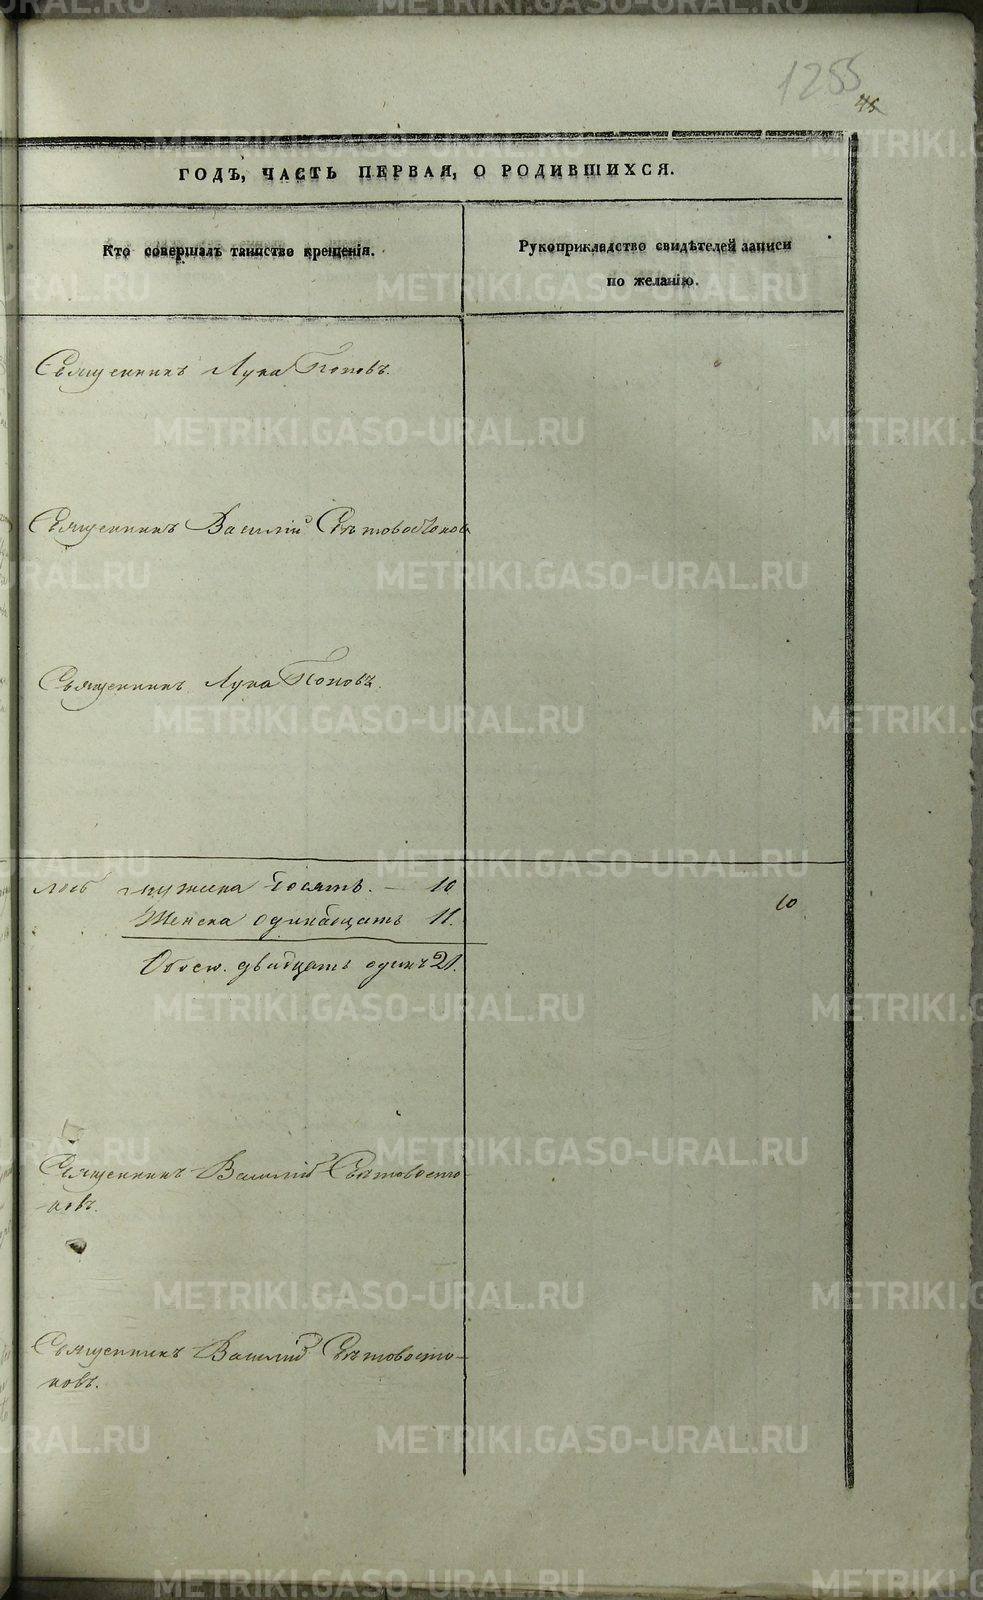 METRIKI.GASO-URAL.RU
1255
45
ГОДЪ, ЧАСТЬ ПЕРВАЯ, О РОДИВШИХСЯ.
Кто совершалъ таинство крещенія.
Рукоприкладство свидѣтелей записи
по желанію.
Священникъ Лука Поповъ.
Священникъ Василій
Священникъ Лука Поповъ.
лось мужеска десять. — 10
10
Женска одинадцать 11.
Обоего. двадцать одинъ 21.
Священникъ Василій Свѣтовосто-
ковъ.
Священникъ Василій Свѣтовосто-
ковъ.